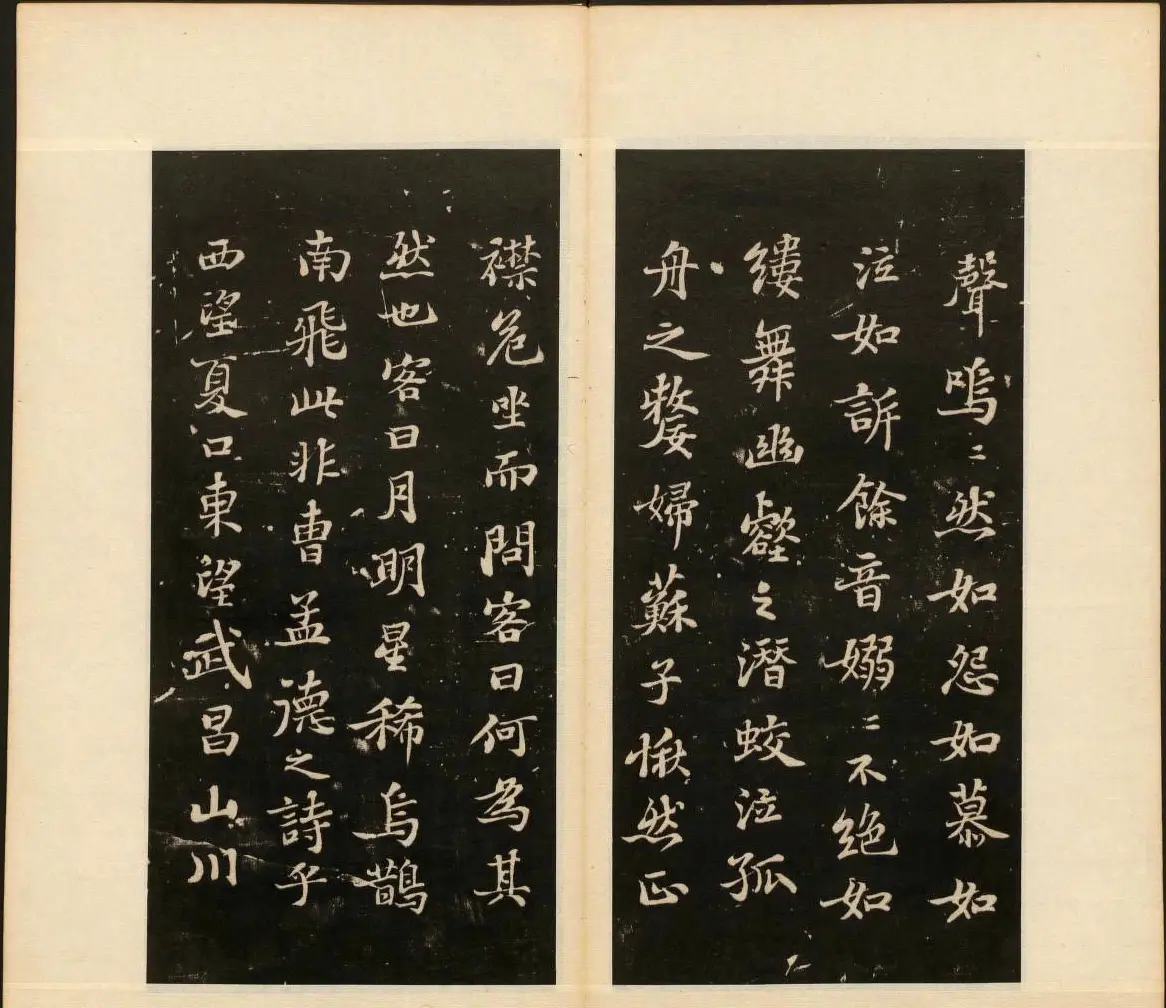 聲嗚〻然如怨如慕如
泣如訴餘音嫋〻不絕如
縷舞幽壑之潛蛟泣孤
舟之嫠婦蘇子愀然正
襟危坐而問客曰何為其
然也客曰月明星稀烏鵲
南飛此非曹孟德之詩乎
西望夏口東望武昌山川